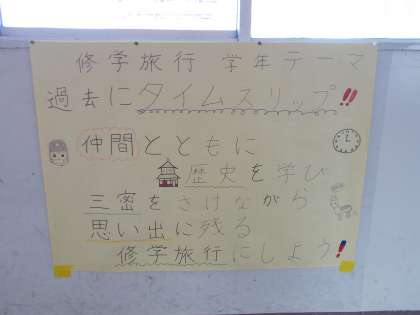 修学旅行 学年テーマ
過去にタイムスリップ!!
仲間とともに
歴史を学び
三密をさけながら
思い出に残る
修学旅行にしよう!